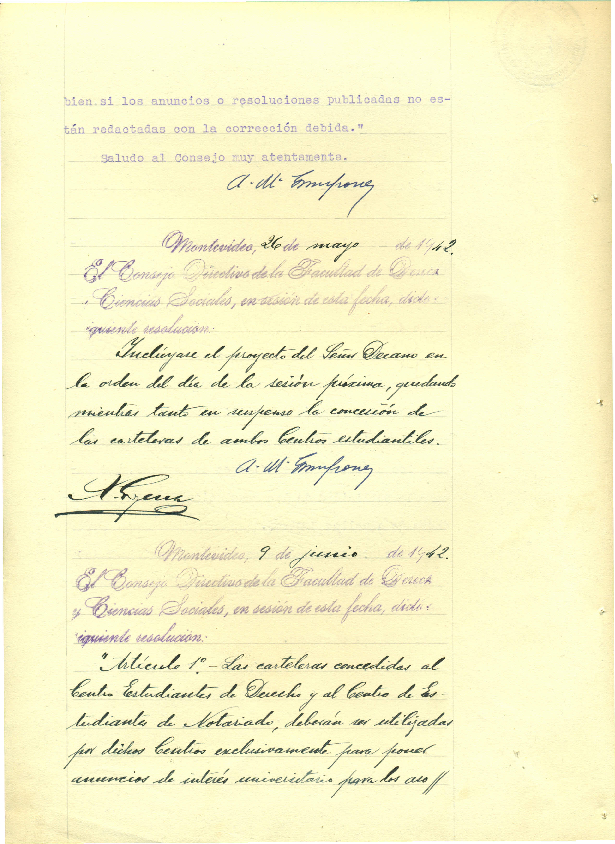 bien si los anuncios o resoluciones publicadas no es-
tán redactadas con la corrección debida."
Saludo al Consejo muy atentamente.
Montevideo, 26 de mayo de 1942.
El Consejo Directivo de la Facultad de Derech
Ciencias Sociales, en sesión de esta fecha, dictó
siguiente resolución:
Inclúyase el proyecto del Señor Decano en
la orden del día de la sesión próxima, quedando
mientras tanto en suspenso la concesión de
las carteleras de ambos Centros estudiantiles.
Montevideo, 9 de junio de 1942.
El Consejo Directivo de la Facultad de Derech
y Ciencias Sociales, en sesión de esta fecha, dictó
siguiente resolución:
"Artículo 1º.- Las carteleras concedidas al
Centro Estudiantes de Derecho y al Centro de Es-
tudiantes de Notariado, deberán ser utilizadas
por dichos Centros exclusivamente para poner
anuncios de interés universitario para los aso//